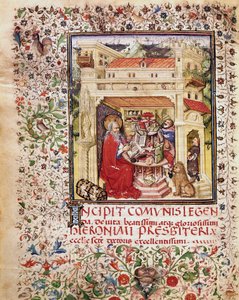 INCIPIT COMVNIS LEGEN
DA. De vita beatissimi atq gloriosissimi
HIERONIMI PRESBITERI
excellentissimi